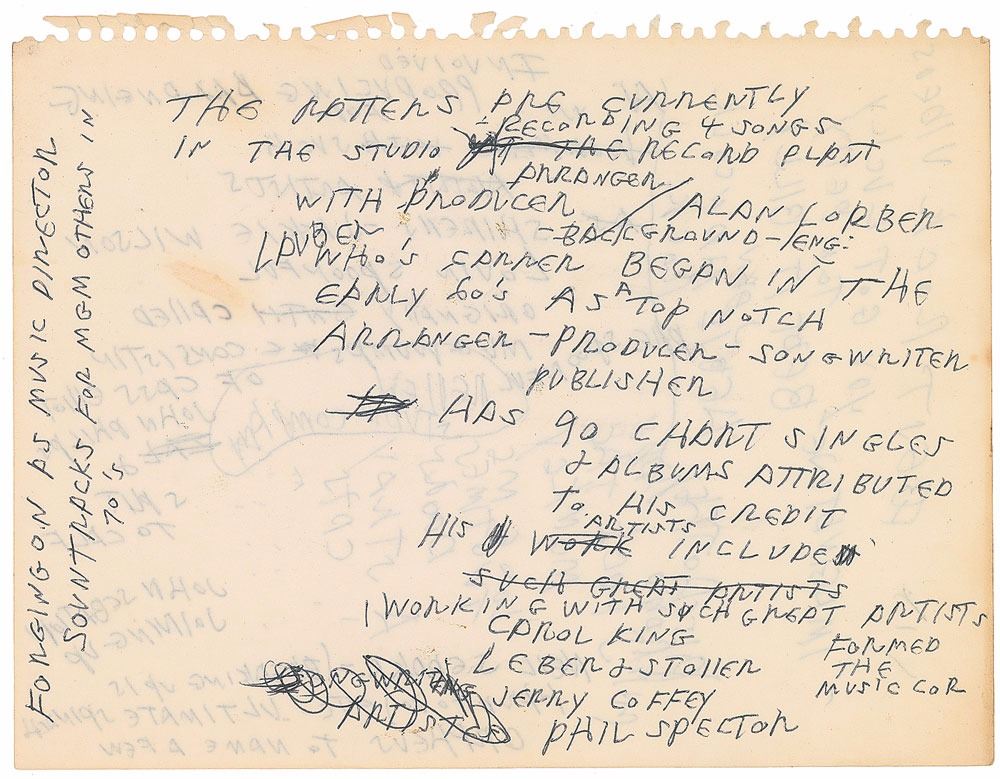 THE RATTERS ARE CURRENTLY
RECORDING 4 SONGS
IN THE STUDIO AT THE RECORD PLANT
ARRANGER
WITH PRODUCER / ALAN LORBER
-BACKGROUND-ENG:
WHO'S CARRER BEGAN IN THE
EARLY 60'S AS A TOP NOTCH
ARRANGER-PRODUCER-SONGWRITER
PUBLISHER
HAS 90 CHART SINGLES
& ALBUMS ATTRIBUTED
TO HIS CREDIT
ARTISTS
HIS WORK INCLUDE
SUCH GREAT ARTISTS
WORKING WITH SUCH GREAT ARTISTS
CAROL KING
LEBER & STOLLER
JERRY COFFEY
PHIL SPECTOR
SONGWRITING
ARTISTS
FORMED
THE
MUSIC COR
FORGING ON AS MUSIC DIRECTOR
SOUNTRACKS FOR MGM OTHERS IN
70's